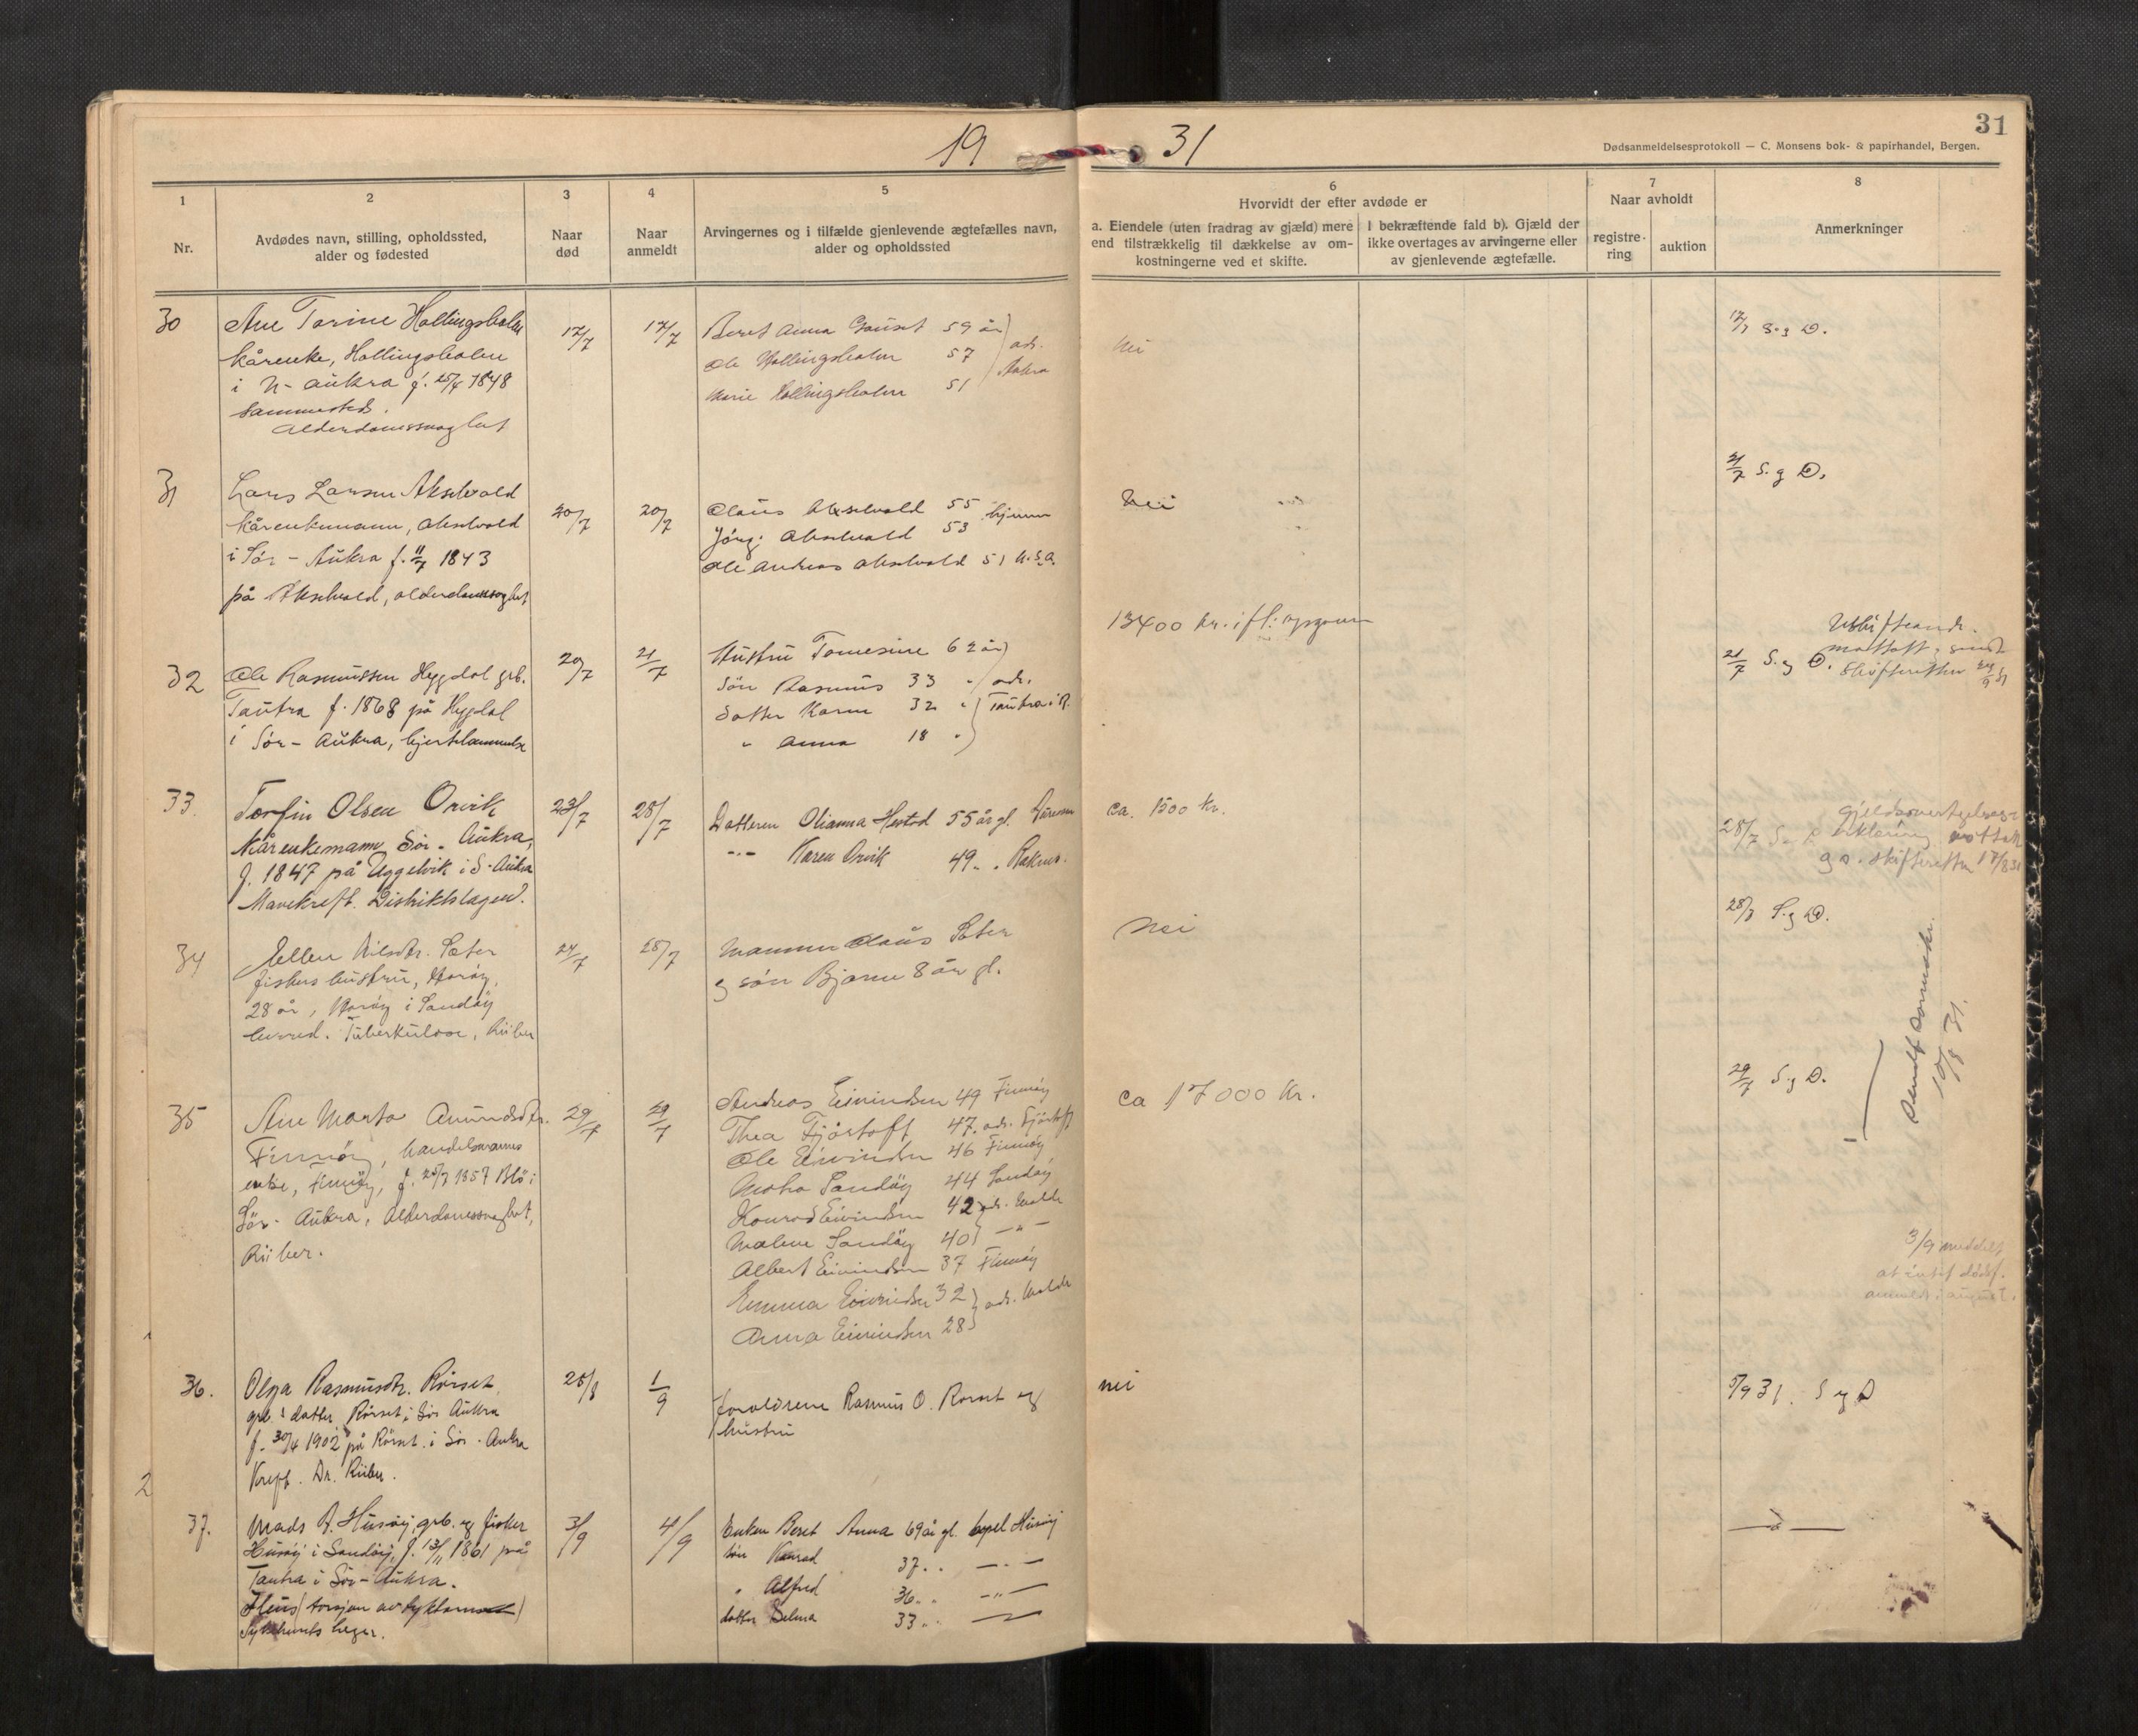 19 31
31
Dødsanmeldelsesprotokoll — C. Monsens bok- & papirhandel, Bergen.
1
Nr.
2
Avdødes navn, stilling, opholdssted,
alder og fødested
3
Naar
død
4
Naar
anmeldt
5
Arvingernes og i tilfælde gjenlevende ægtefælles navn,
alder og opholdssted
6
Hvorvidt der efter avdøde er
a. Eiendele (uten fradrag av gjæld) mere
end tilstrækkelig til dækkelse av om-
kostningerne ved et skifte.
I bekræftende fald b). Gjæld der
ikke overtages av arvingerne eller
av gjenlevende ægtefælle.
7
Naar avholdt
registre-
ring
auktion
8
Anmerkninger
30
Ane Tarine Hollingsholm
kårenke, Hollingsholm
i N-Aukra f. 25/4 1848
sammesteds.
Alderdomssvaghet
17/7
17/7
Beret Anna 59 år
Ole Hollingsholm 57
Marie Hollingsholm 51
adr.
Aukra
Nei
17/7 S. g D.
31
Lars Larsen Akselvold
kårenkemann, Akselvold
i Sör-Aukra f. 11/7 1843
på Akselvold, alderdomssvaghet
20/7
20/7
Olaus Akselvold 55
Jörg. Akselvold 53
hjemme
Ole Andreas Akselvold 51 U.S.A.
Nei
21/7 S. g D.
32
Ole Rasmussen Hygdal grb.
Tautra f. 1868 på Hygdal
i Sör-Aukra, hjertelammelse
20/7
21/7
Hustru Tomesine 62 år
Sön Rasmus 33 "
Datter Karen 32 "
" Anna 18 "
adr.
Tautra i A.
13400 kr. ifl. opgave
21/7 S. g D.
mottatt, sendt
Skifteretten 24/9 31
33.
Torfin Olsen Orvik
Kårenkemann Sör-Aukra,
f. 1847 på Uggelvik i S-Aukra
Mavekreft. Distriktslægen.
23/7
28/7
Datteren Olianna Hestad 55 år gl.
-"- Karen Orvik 49 " "
ca. 1500 kr.
28/7 S.
Gjeldsovertagelses-
erklæring mottatt
skifteretten 17/8 31
34
Ellen Nilsdtr. Sæter
fiskers hustru, Harøy,
28 år, Harøy i Sandöy
herred. Tuberkulose, Riiber
24/7
28/7
Mannen Olaus Sæter
og sön Bjarne 8 år gl.
Nei
28/7 S. g D.
35
Ane Marta Amundsdtr.
Finnöy, handelsmanns
enke, Finnöy, f. 25/7 1857 Blö i
Sör-Aukra, Alderdomssvaghet,
Riiber.
29/7
29/7
Andreas Eivindsen 49 Finnöy
Thea Fjörtoft 47 adr. Fjörtoft
Ole Eivindsen 46 Finnöy
Sandöy 44 Sandöy
Konrad Eivindsen 42 adr. Molde
Malene Sandöy 40 -"-
Albert Eivindsen 37 Finnöy
Emma Eivindsen 32
Anna Eivindsen 28
adr. Molde
ca 17000 kr.
29/7 S. g D.
Sendt
10/8 31.
3/9 meddelt
at intet dödsf.
anmeldt i august.
36.
Olga Rasmusdtr. Rörset,
grb. datter, Rörset i Sör Aukra
f. 30/4 1902 på Rörset i Sör-Aukra
Kreft. Dr. Riiber.
25/8
1/9
foreldrene Rasmus O. Rörset og
hustru
nei
5/9 31. S g D
37.
Mads B. Husöy, grb. og fisker
Husöy i Sandöy, f. 13/11 1861 på
Tautra i Sör-Aukra.
Ileus (torsjon av tyktarmen)
Sykehusets leger.
3/9
4/9
Enken Beret Anna 69 år gl. bopel Husöy
sön Konrad 37 " " — " —
" Alfred 36 " " — " —
datter Selma 33 " "
2